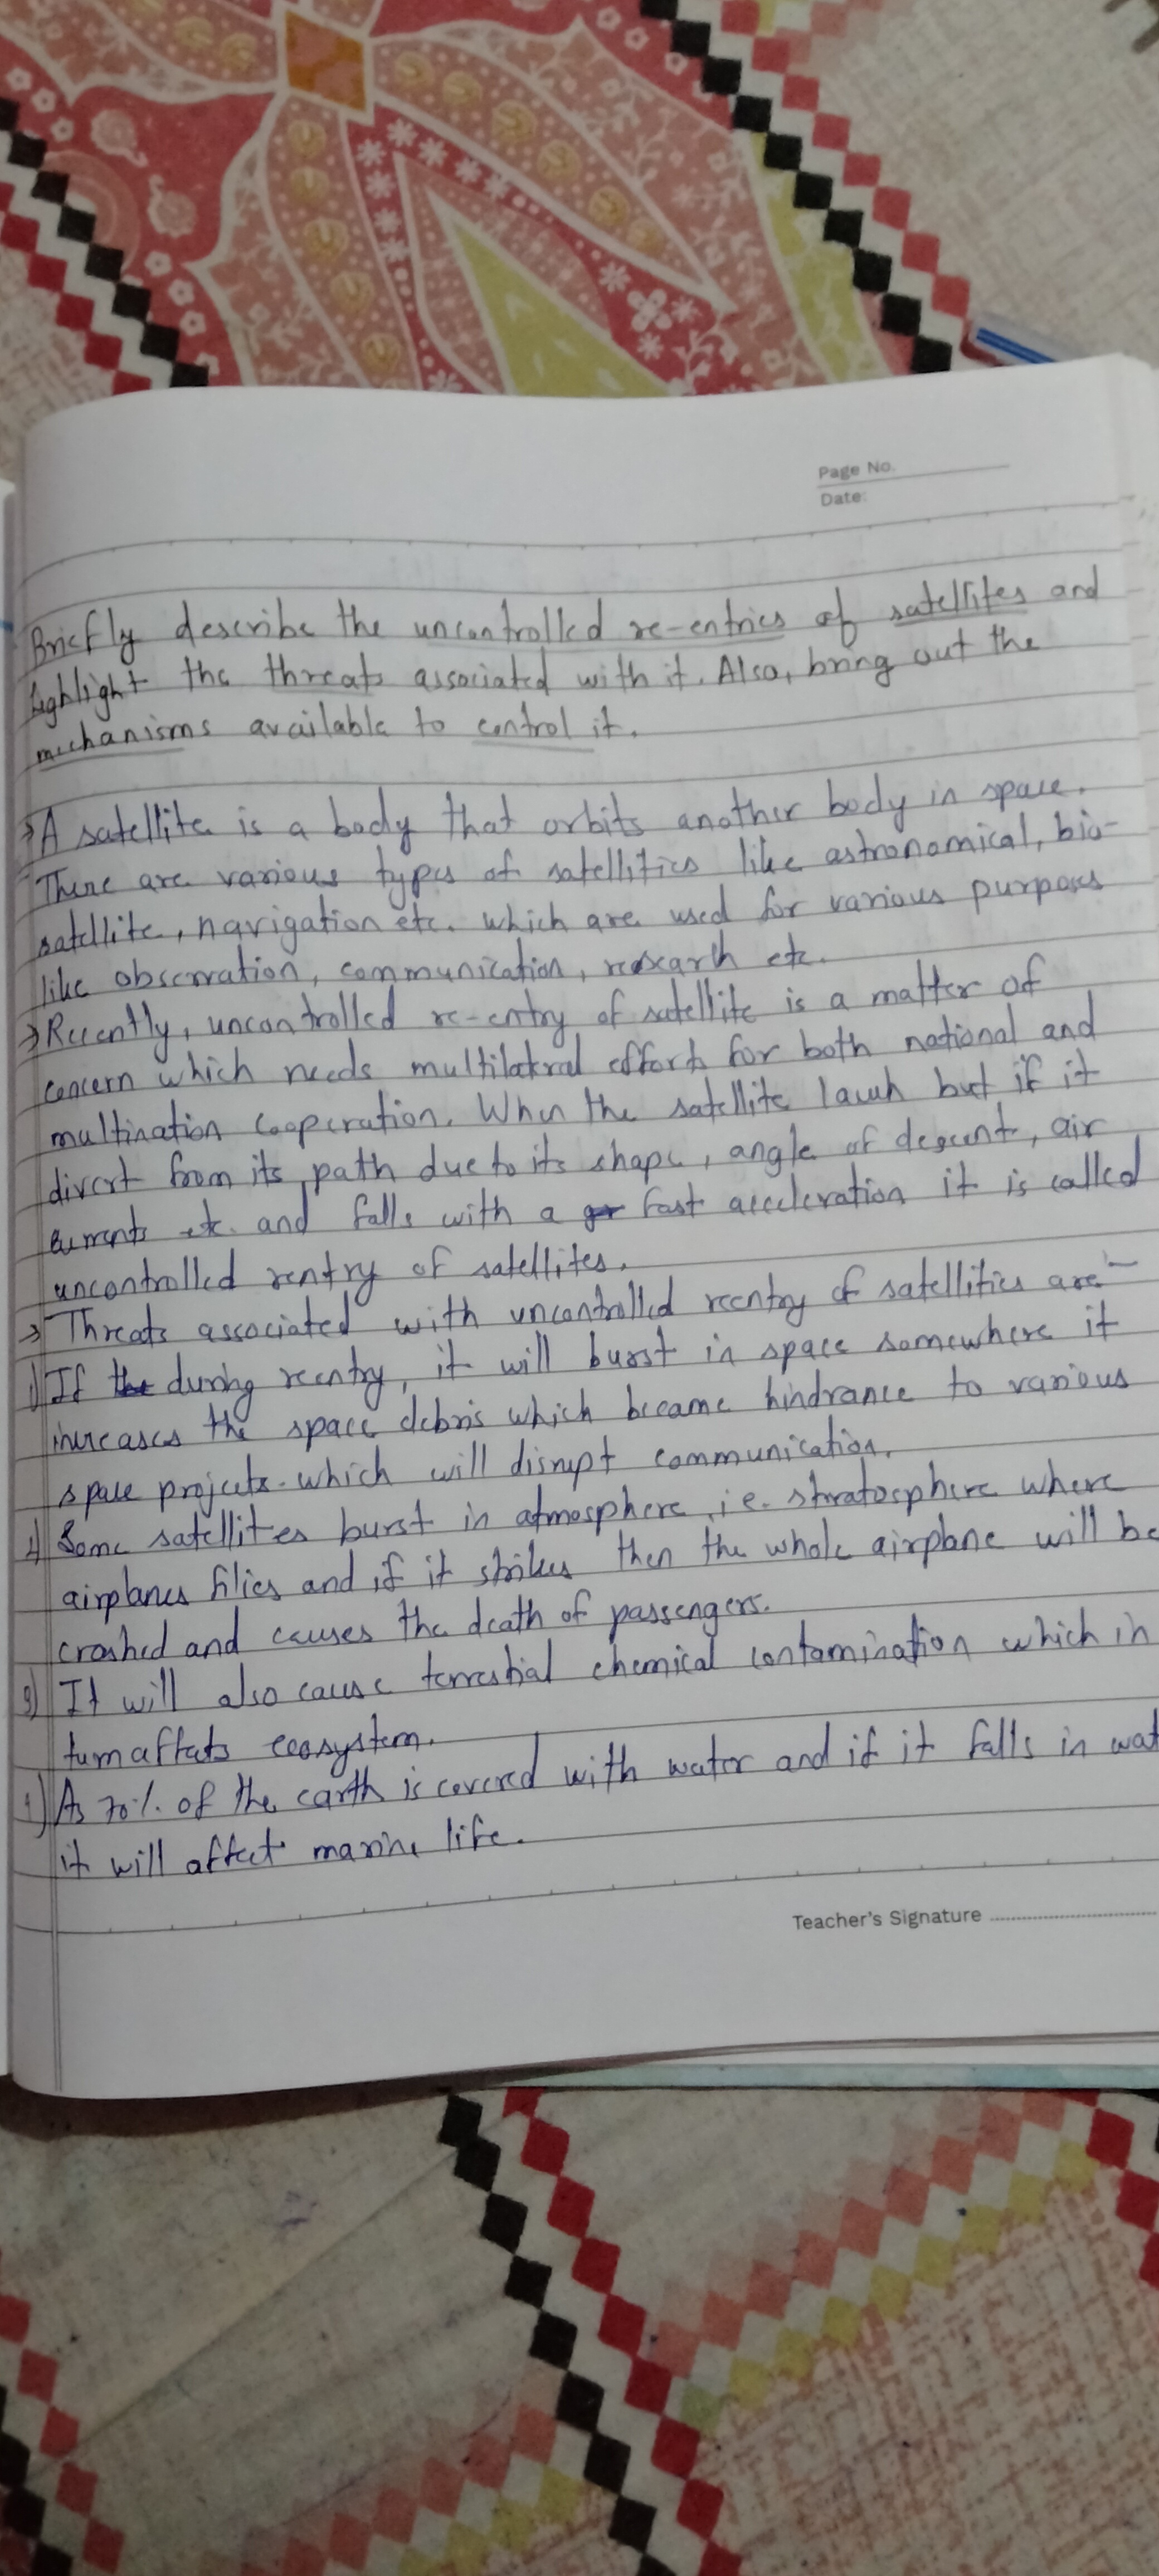 Page No.
Date:
Briefly describe the uncontrolled re-entries of satellites and
highlight the threats associated with it. Also, bring out the
mechanisms available to control it.
→A satellite is a body that orbits another body in space.
There are various types of satellities like astronomical, bio-
satellite, navigation etc. which are used for various purposes
like observation, communication, research etc.
→Recently, uncontrolled re-entry of satellite is a matter of
concern which needs multilateral efforts for both national and
multination cooperation. When the satellite lauch but if it
divert from its path due to its shape, angle of descent, air
currents etc. and falls with a fast acceleration it is called
uncontrolled rentry of satellites.
→ Threats associated with uncontrolled reentry of satellities are-
1) If during reentry, it will burst in space somewhere it
increases the space debris which became hindrance to various
space projects which will disrupt communication.
2) Some satellites burst in atmosphere i.e. stratosphere where
airplanes flies and if it strikes then the whole airplane will be
crashed and causes the death of passengers.
3) It will also cause terrestial chemical contamination which in
turn affects ecosystem.
4) As 70% of the earth is covered with water and if it falls in wat
it will affect marine life.
Teacher's Signature